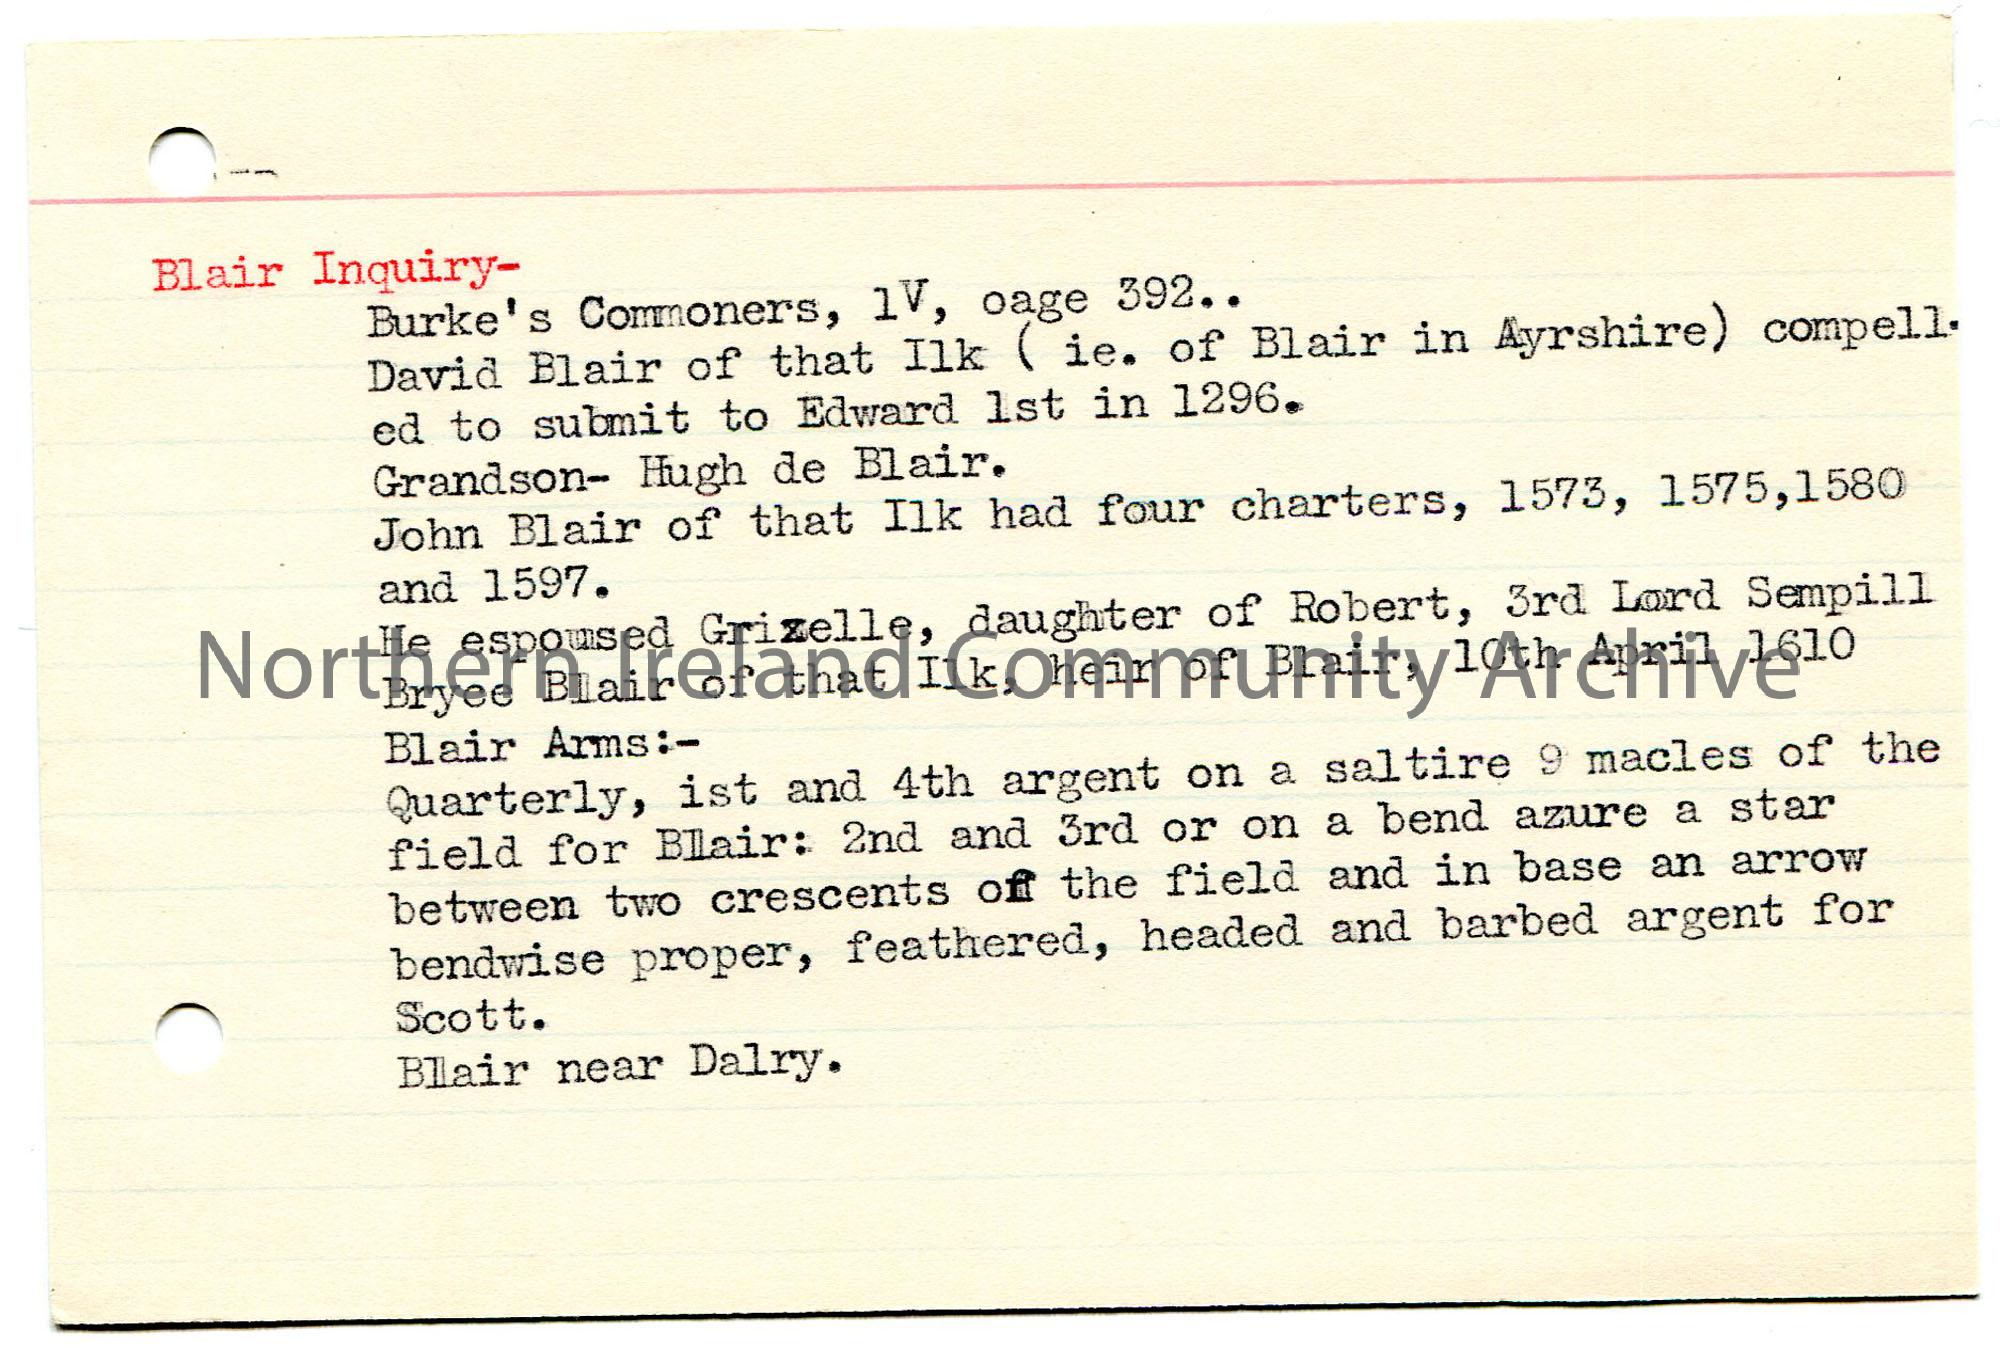 Blair Inquiry-
Burke's Commoners, 1V, oage 392..
David Blair of that Ilk ( ie. of Blair in Ayrshire) compell-
ed to submit to Edward 1st in 1296.
Grandson- Hugh de Blair.
John Blair of that Ilk had four charters, 1573, 1575,1580
and 1597.
He espoused Grizelle, daughter of Robert, 3rd Lord Sempill
Bryce Blair of that Ilk, heir of Blair, 10th April 1610
Northern Ireland Community Archive
Blair Arms:-
Quarterly, ist and 4th argent on a saltire 9 macles of the
field for Blair: 2nd and 3rd or on a bend azure a star
between two crescents of the field and in base an arrow
bendwise proper, feathered, headed and barbed argent for
Scott.
Blair near Dalry.